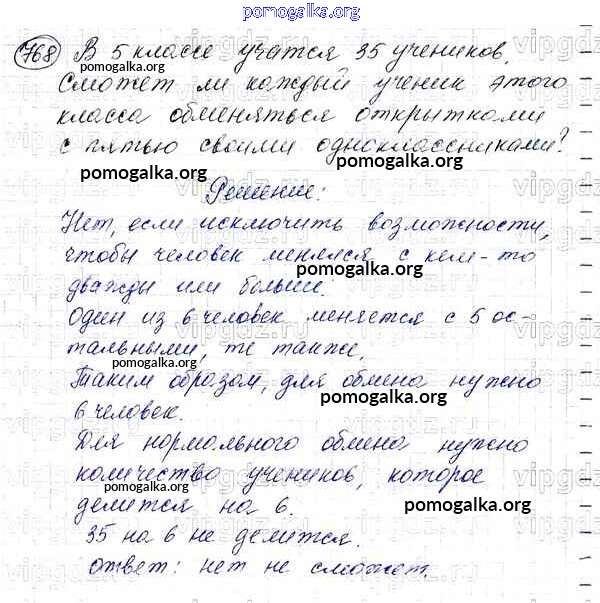 pomogalka.org
768 В 5 классе учатся 35 учеников.
pomogalka.org
Сможет ли каждый ученик этого
класса обменяться открытками
с пятью своими одноклассниками?
pomogalka.org pomogalka.org
Решение:
Нет, если исключить возможности,
чтобы человек менялся с кем-то
pomogalka.org
дважды или больше.
Один из 6 человек меняется с 5 ос-
тальными, те также.
pomogalka.org
Таким образом, для обмена нужно
6 человек.
pomogalka.org
Для нормального обмена нужно
количество учеников, которое
pomogalka.org
делится на 6.
pomogalka.org
35 на 6 не делится.
ответ: нет не сможет.
pomogalka.org